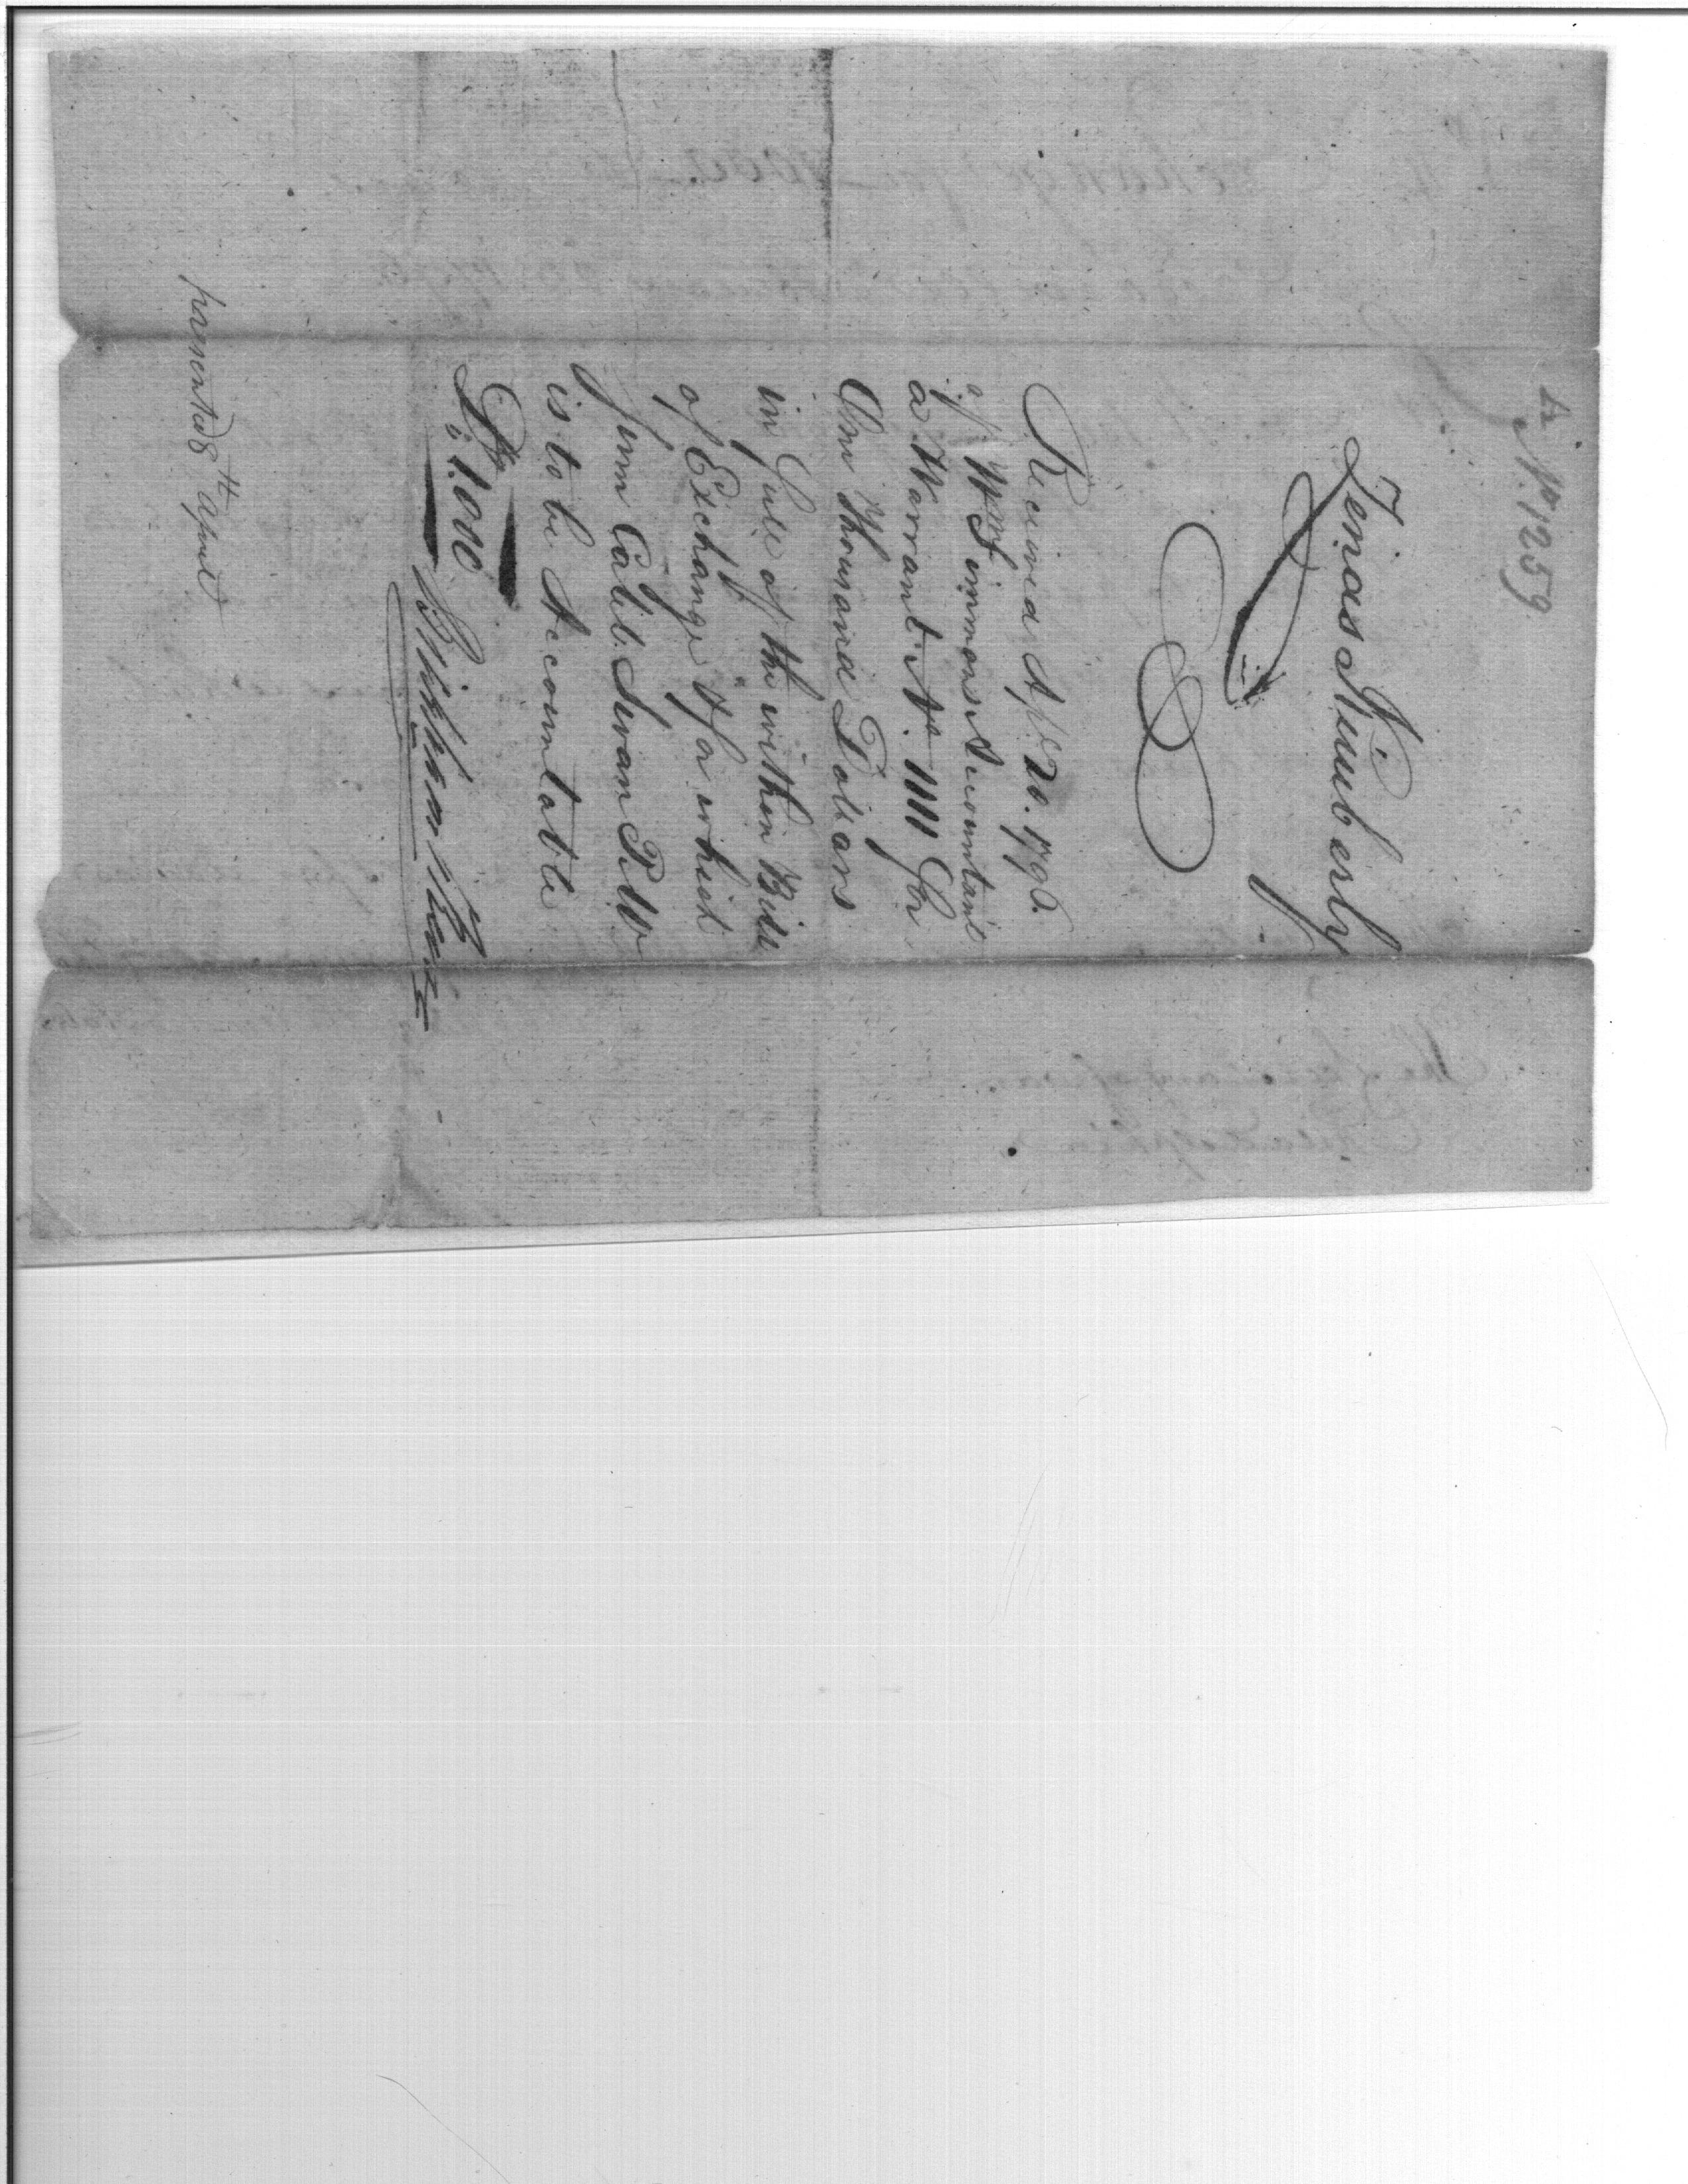 No. 1259
Zenas Kimberly
Received Apl. 20. 1796.
of Wm. Simmons Accountant
a Warrant No. 1111 for
One Thousand Dollars
in full of the within Bill
of Exchange & for which
from Caleb Swan P.M
is to be Accountable
Ds. 1.000
presented 8th April